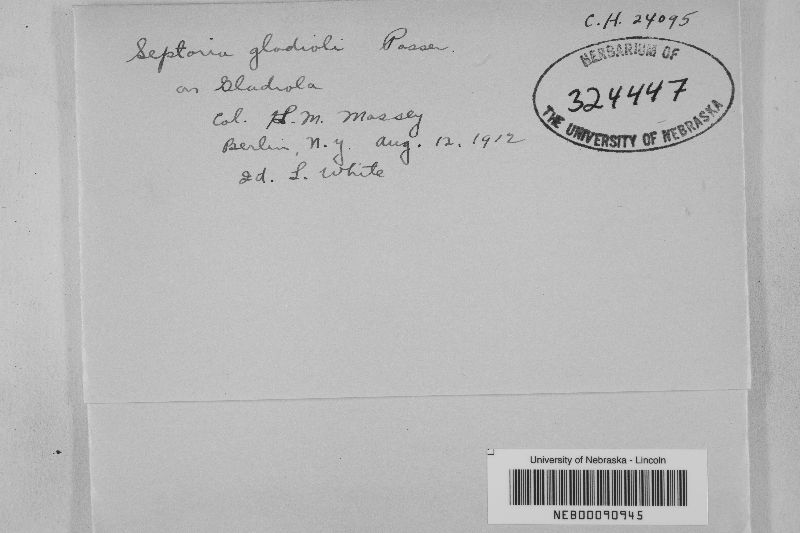 C.H. 24095
Septoria gladioli Passer.
on Gladiola
Col. L. M. Massey
Berlin, N.Y. Aug. 12. 1912
Id. L. White
HERBARIUM OF
324447
THE UNIVERSITY OF NEBRASKA
University of Nebraska - Lincoln
NEB00090945